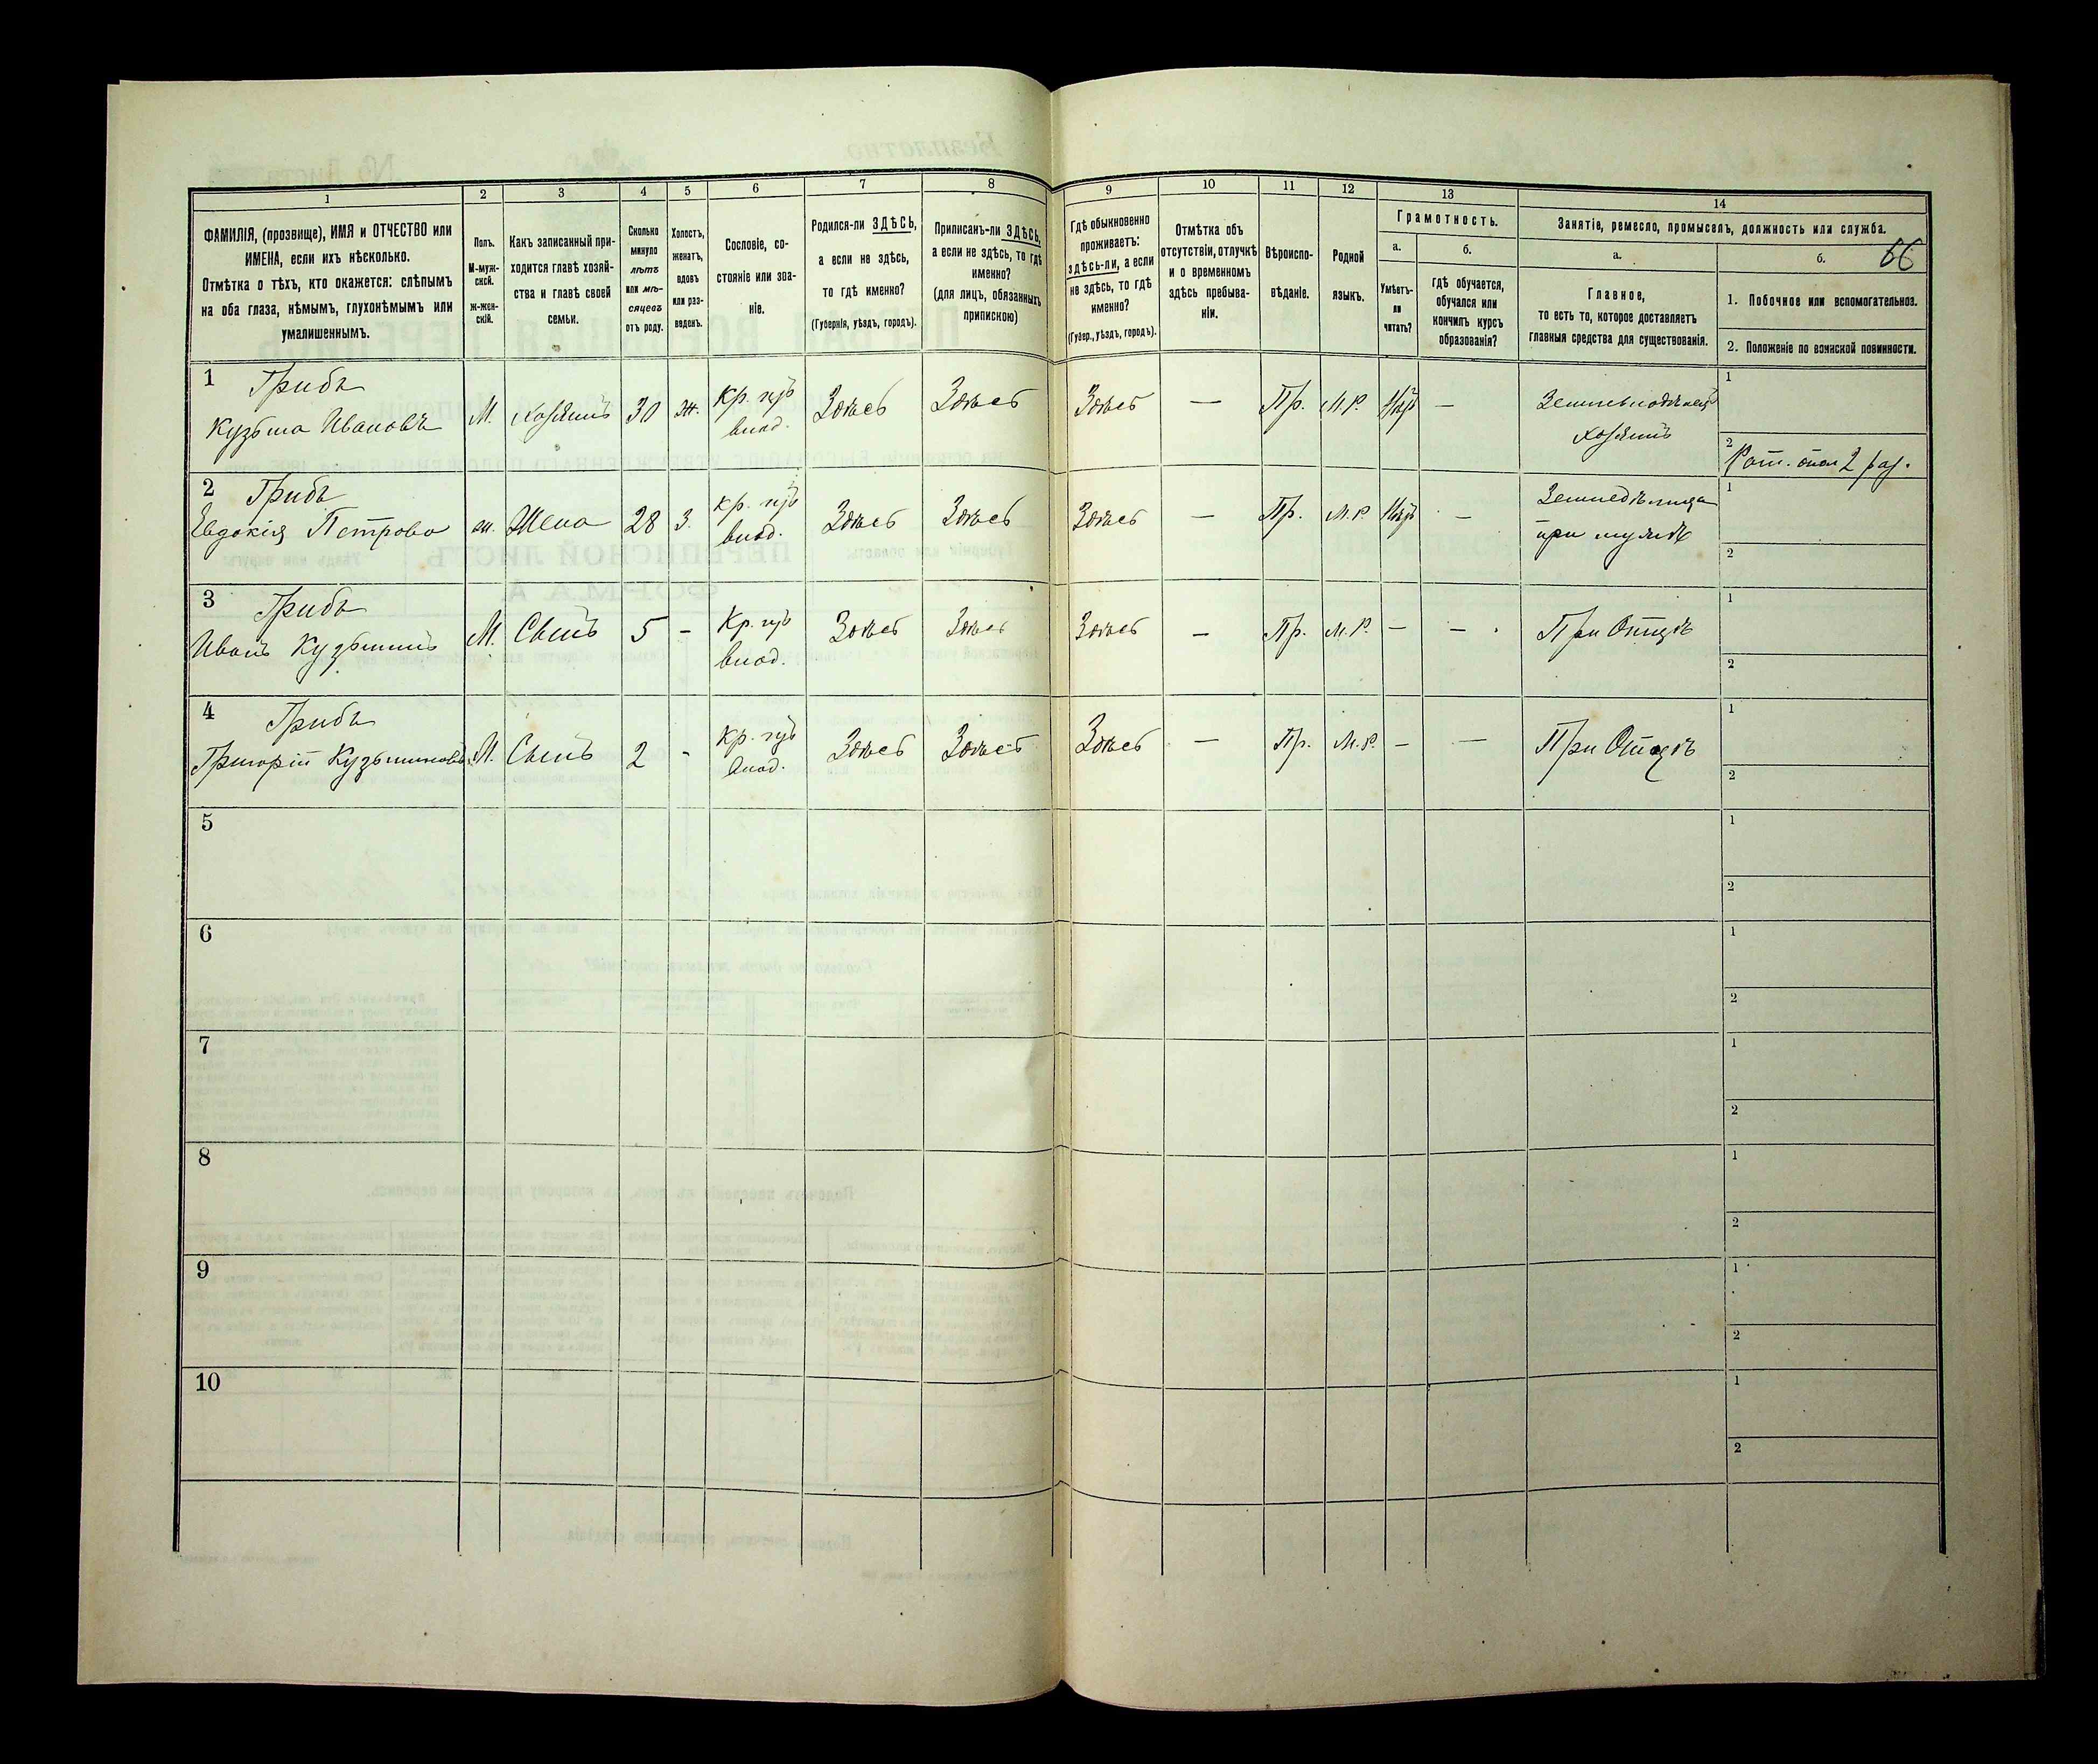 1 2 3 4 5 6 7 8 9 10 11 12 13 14
ФАМИЛІЯ, (прозвище), ИМЯ и ОТЧЕСТВО или
ИМЕНА, если ихъ нѣсколько.
Отмѣтка о тѣхъ, кто окажется: слѣпымъ
на оба глаза, нѣмымъ, глухонѣмымъ или
умалишеннымъ.
Полъ.
М-муж-
ской.
ж-жен-
скій.
Какъ записанный при-
ходится главѣ хозяй-
ства и главѣ своей
семьи.
Сколько
минуло
лѣтъ
или мѣ-
сяцевъ
отъ роду.
Холостъ,
женатъ,
вдовъ
или раз-
веденъ.
Сословіе, со-
стояніе или зва-
ніе.
Родился-ли ЗДѢСЬ,
а если не здѣсь,
то гдѣ именно?
(Губернія, уѣздъ, городъ).
Приписанъ-ли ЗДѢСЬ,
а если не здѣсь, то гдѣ
именно?
(для лицъ, обязанныхъ
припискою)
Гдѣ обыкновенно
проживаетъ:
здѣсь-ли, а если
не здѣсь, то гдѣ
именно?
(Губер., уѣздъ, городъ).
Отмѣтка объ
отсутствіи, отлучкѣ
и о временномъ
здѣсь пребыва-
ніи.
Вѣроиспо-
вѣданіе.
Родной
языкъ.
Грамотность.
а.
Умѣетъ-
ли
читать?
б.
гдѣ обучается,
обучался или
кончилъ курсъ
образованія?
Занятіе, ремесло, промыселъ, должность или служба.
а.
Главное,
то есть то, которое доставляетъ
главныя средства для существованія.
б. 66
1. Побочное или вспомогательное.
2. Положеніе по воинской повинности.
1 Грибъ
Кузьма Ивановъ М. Хозяинъ 30 ж. Кр. Здѣсь Здѣсь Здѣсь — Пр. М.Р. Нѣтъ —
хозяинъ
1
2 2 раз.
2 Грибъ
Евдокія Петрова ж. Жена 28 З. Кр. Здѣсь Здѣсь Здѣсь — Пр. М.Р. Нѣтъ —
при мужѣ
1
2
3 Грибъ
Иванъ М. Сынъ 5 - Кр. Здѣсь Здѣсь Здѣсь — Пр. М.Р. — — При Отцѣ
1
2
4 Грибъ
Григорій Кузьминовъ М. Сынъ 2 - Кр. Здѣсь Здѣсь Здѣсь — Пр. М.Р. — — При Отцѣ
1
2
5 1
2
6 1
2
7 1
2
8 1
2
9 1
2
10 1
2